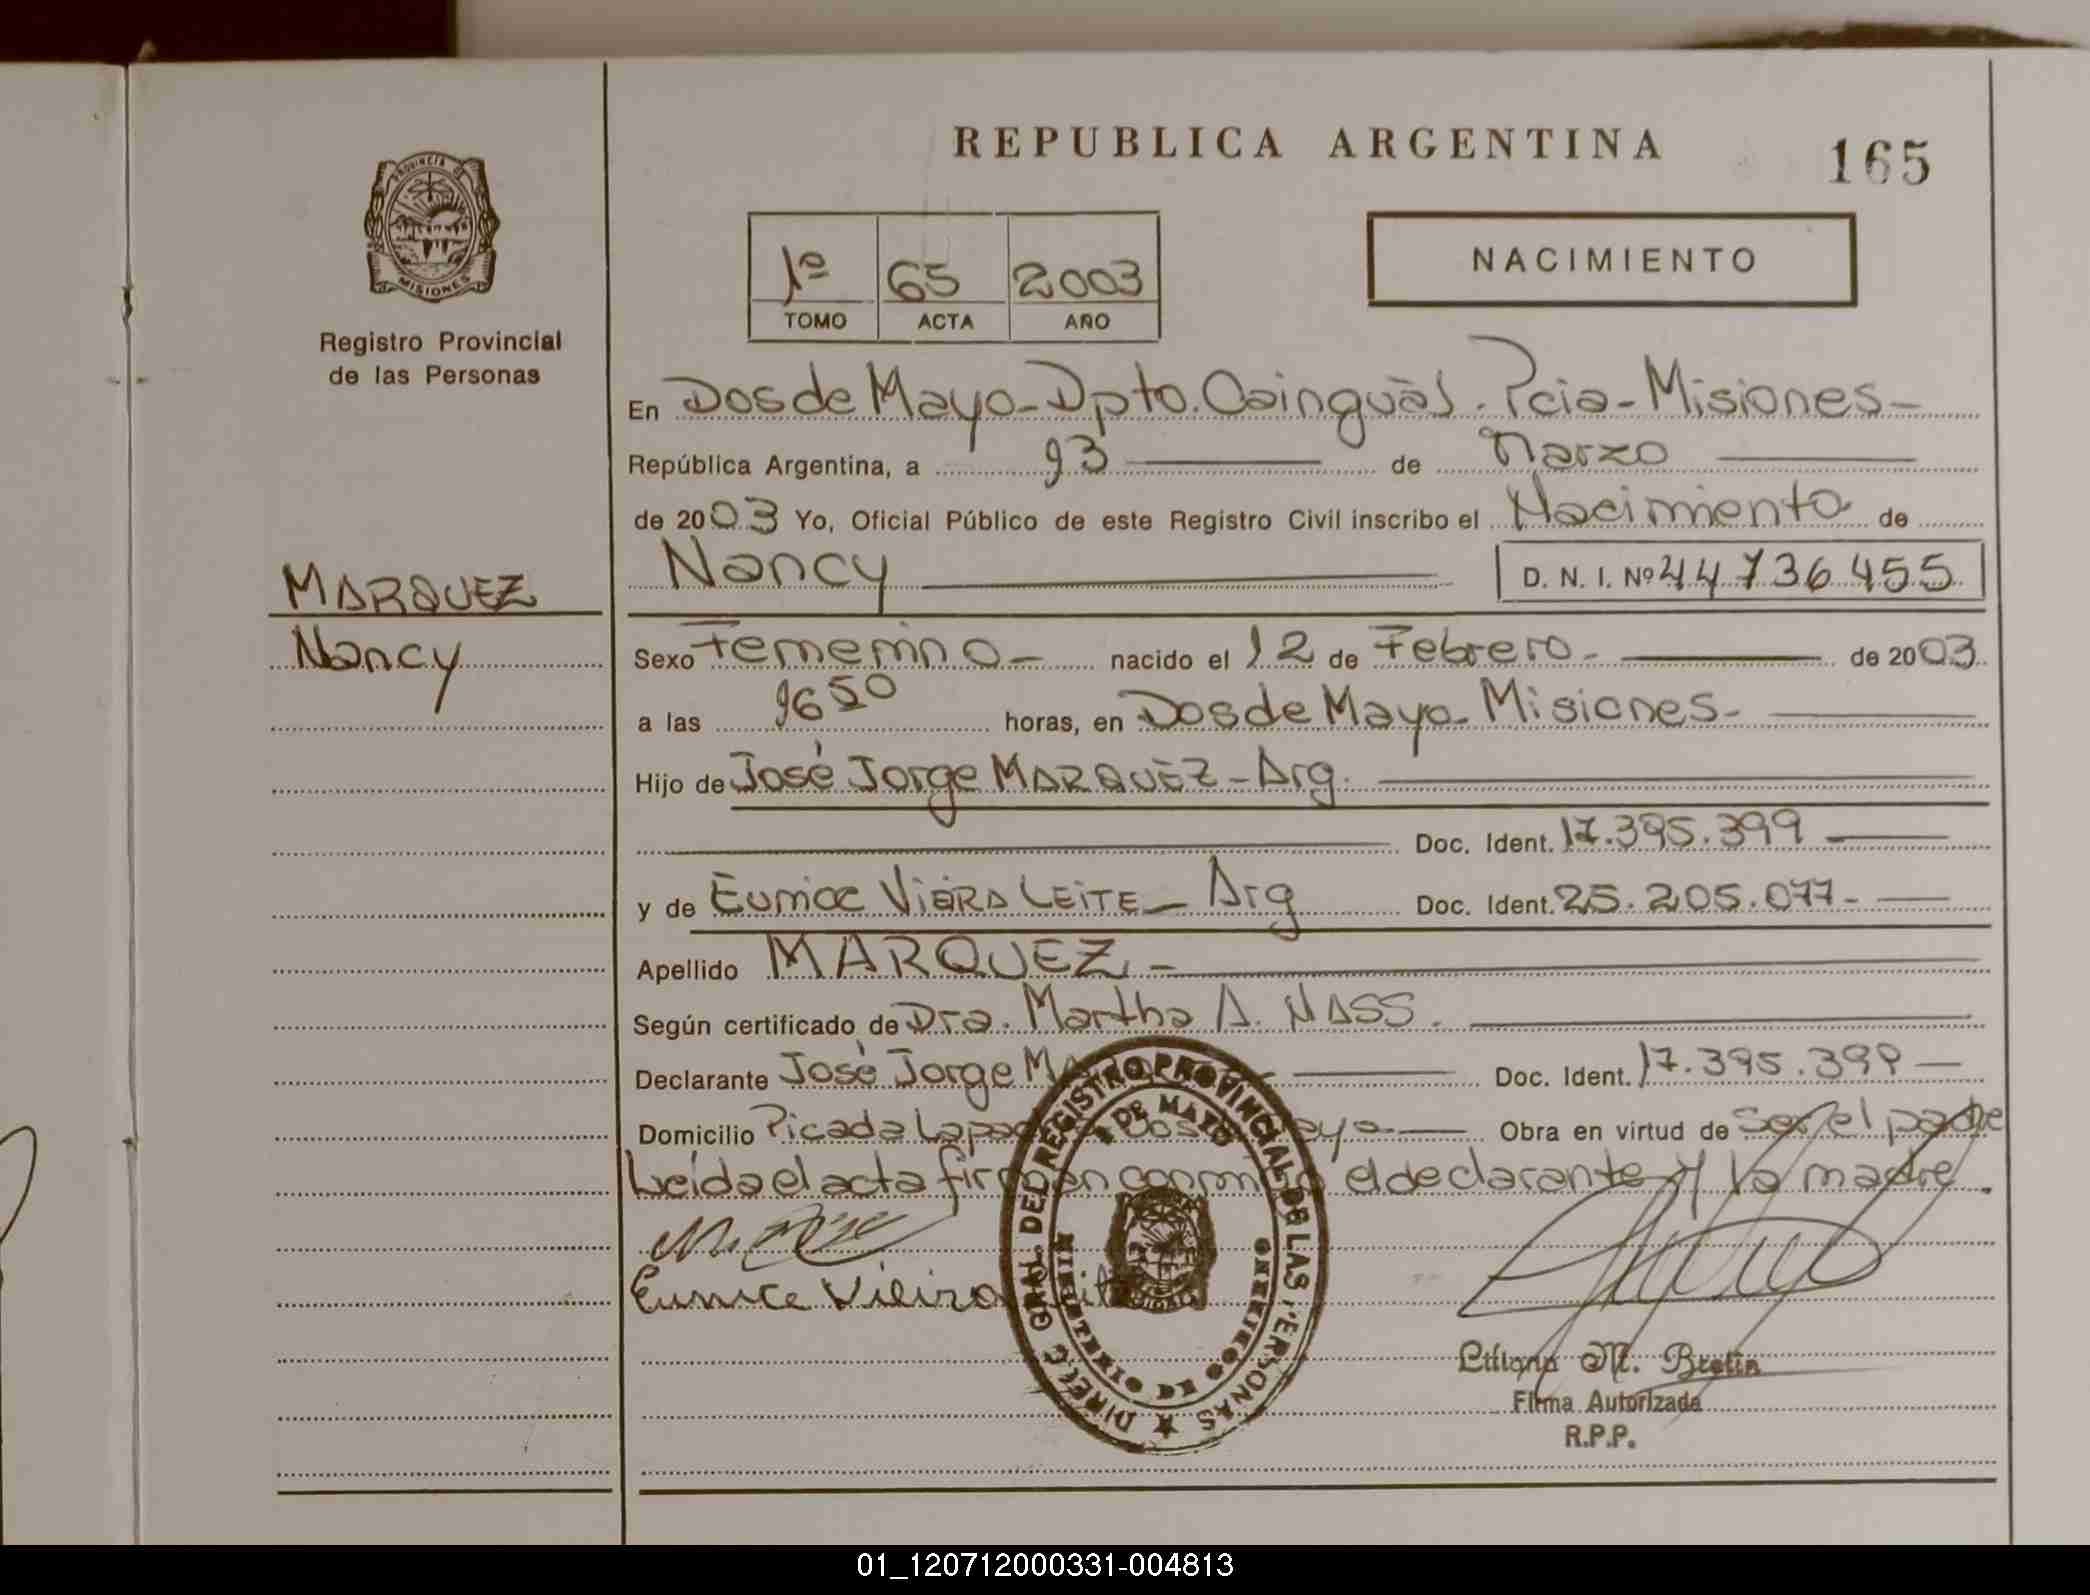 REPUBLICA ARGENTINA
165
PROVINCIA DE
MISIONES
Registro Provincial
de las Personas
1º 65 2003
TOMO ACTA AÑO
NACIMIENTO
En Dos de Mayo - Dpto. Cainguàs. Pcia - Misiones -
República Argentina, a 13 de Marzo
de 2003 Yo, Oficial Público de este Registro Civil inscribo el Nacimiento de
Nancy D. N. I. Nº 44736455
MARQUEZ
Nancy
Sexo Femenino - nacido el 12 de Febrero - de 2003
a las 1650 horas, en Dos de Mayo - Misiones -
Hijo de José Jorge MARQUEZ - Arg.
Doc. Ident. 17.395.399
y de Eunice VIERA LEITE - Arg Doc. Ident. 25.205.077 -
Apellido MARQUEZ -
Según certificado de Dra. Martha A. NASS.
Declarante José Jorge Doc. Ident. 17.395.399
Domicilio Picada Obra en virtud de ser el padre
Leída el acta firman conmigo el declarante y la madre.
Eunice Vieira
DIRECC. GRAL DEL REGISTRO PROVINCIAL DE LAS PERSONAS
2 DE MAYO
MINISTERIO DE GOBIERNO
Liliana M. Brolin
Firma Autorizada
R.P.P.
01_120712000331-004813